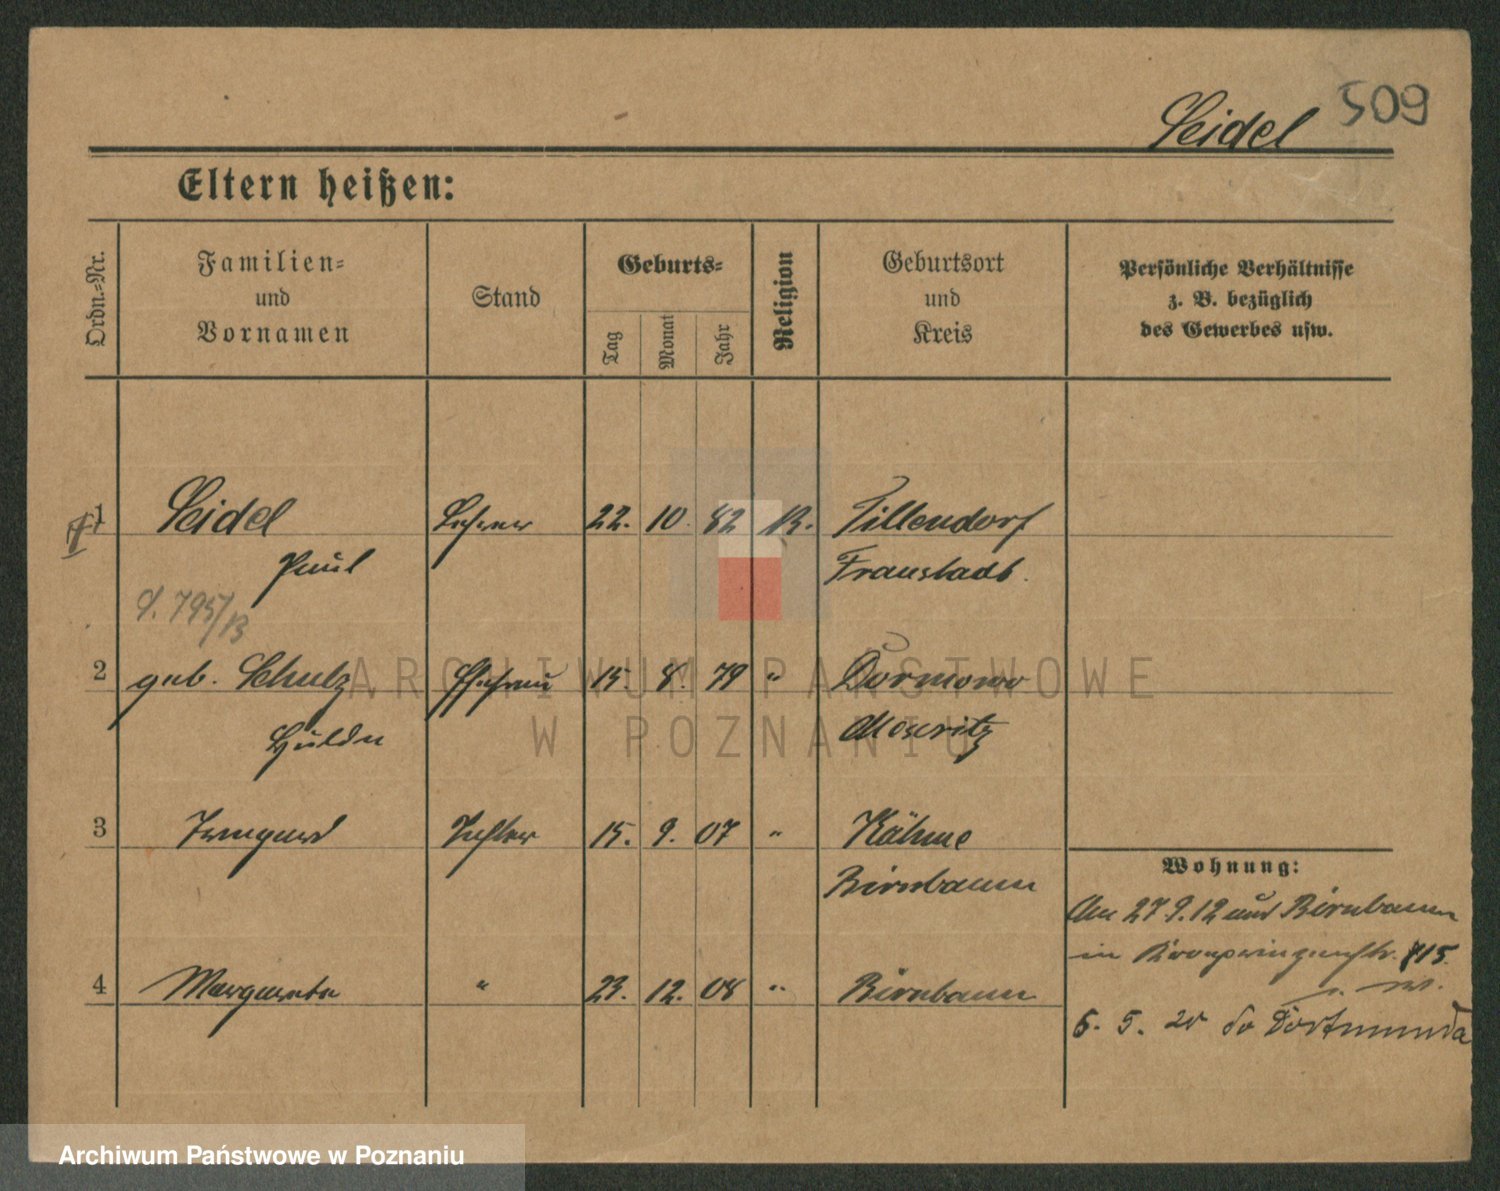 Seidel 509
Eltern heißen:
Ordn.=Nr.
Familien=
und
Vornamen
Stand
Geburts=
Tag
Monat
Jahr
Religion
Geburtsort
und
Kreis
Persönliche Verhältnisse
z. B. bezüglich
des Gewerbes usw.
1 Seidel Lehrer 22. 10. 82 Tillendorf
Paul Fraustadt.
2 geb. Schulz Ehefrau 15. 8. 79 " Dormowo
Hulda Meseritz
3 Irmgard Tochter 15. 9. 07 " Kähme
Birnbaum
4 Margarete " 23. 12. 08 " Birnbaum
Wohnung:
Am 27.9.12 aus Birnbaum
in Kronprinzenstr. 115
5. 5. 20 do Dortmunda
ARCHIWUM PAŃSTWOWE
W POZNANIU
Archiwum Państwowe w Poznaniu